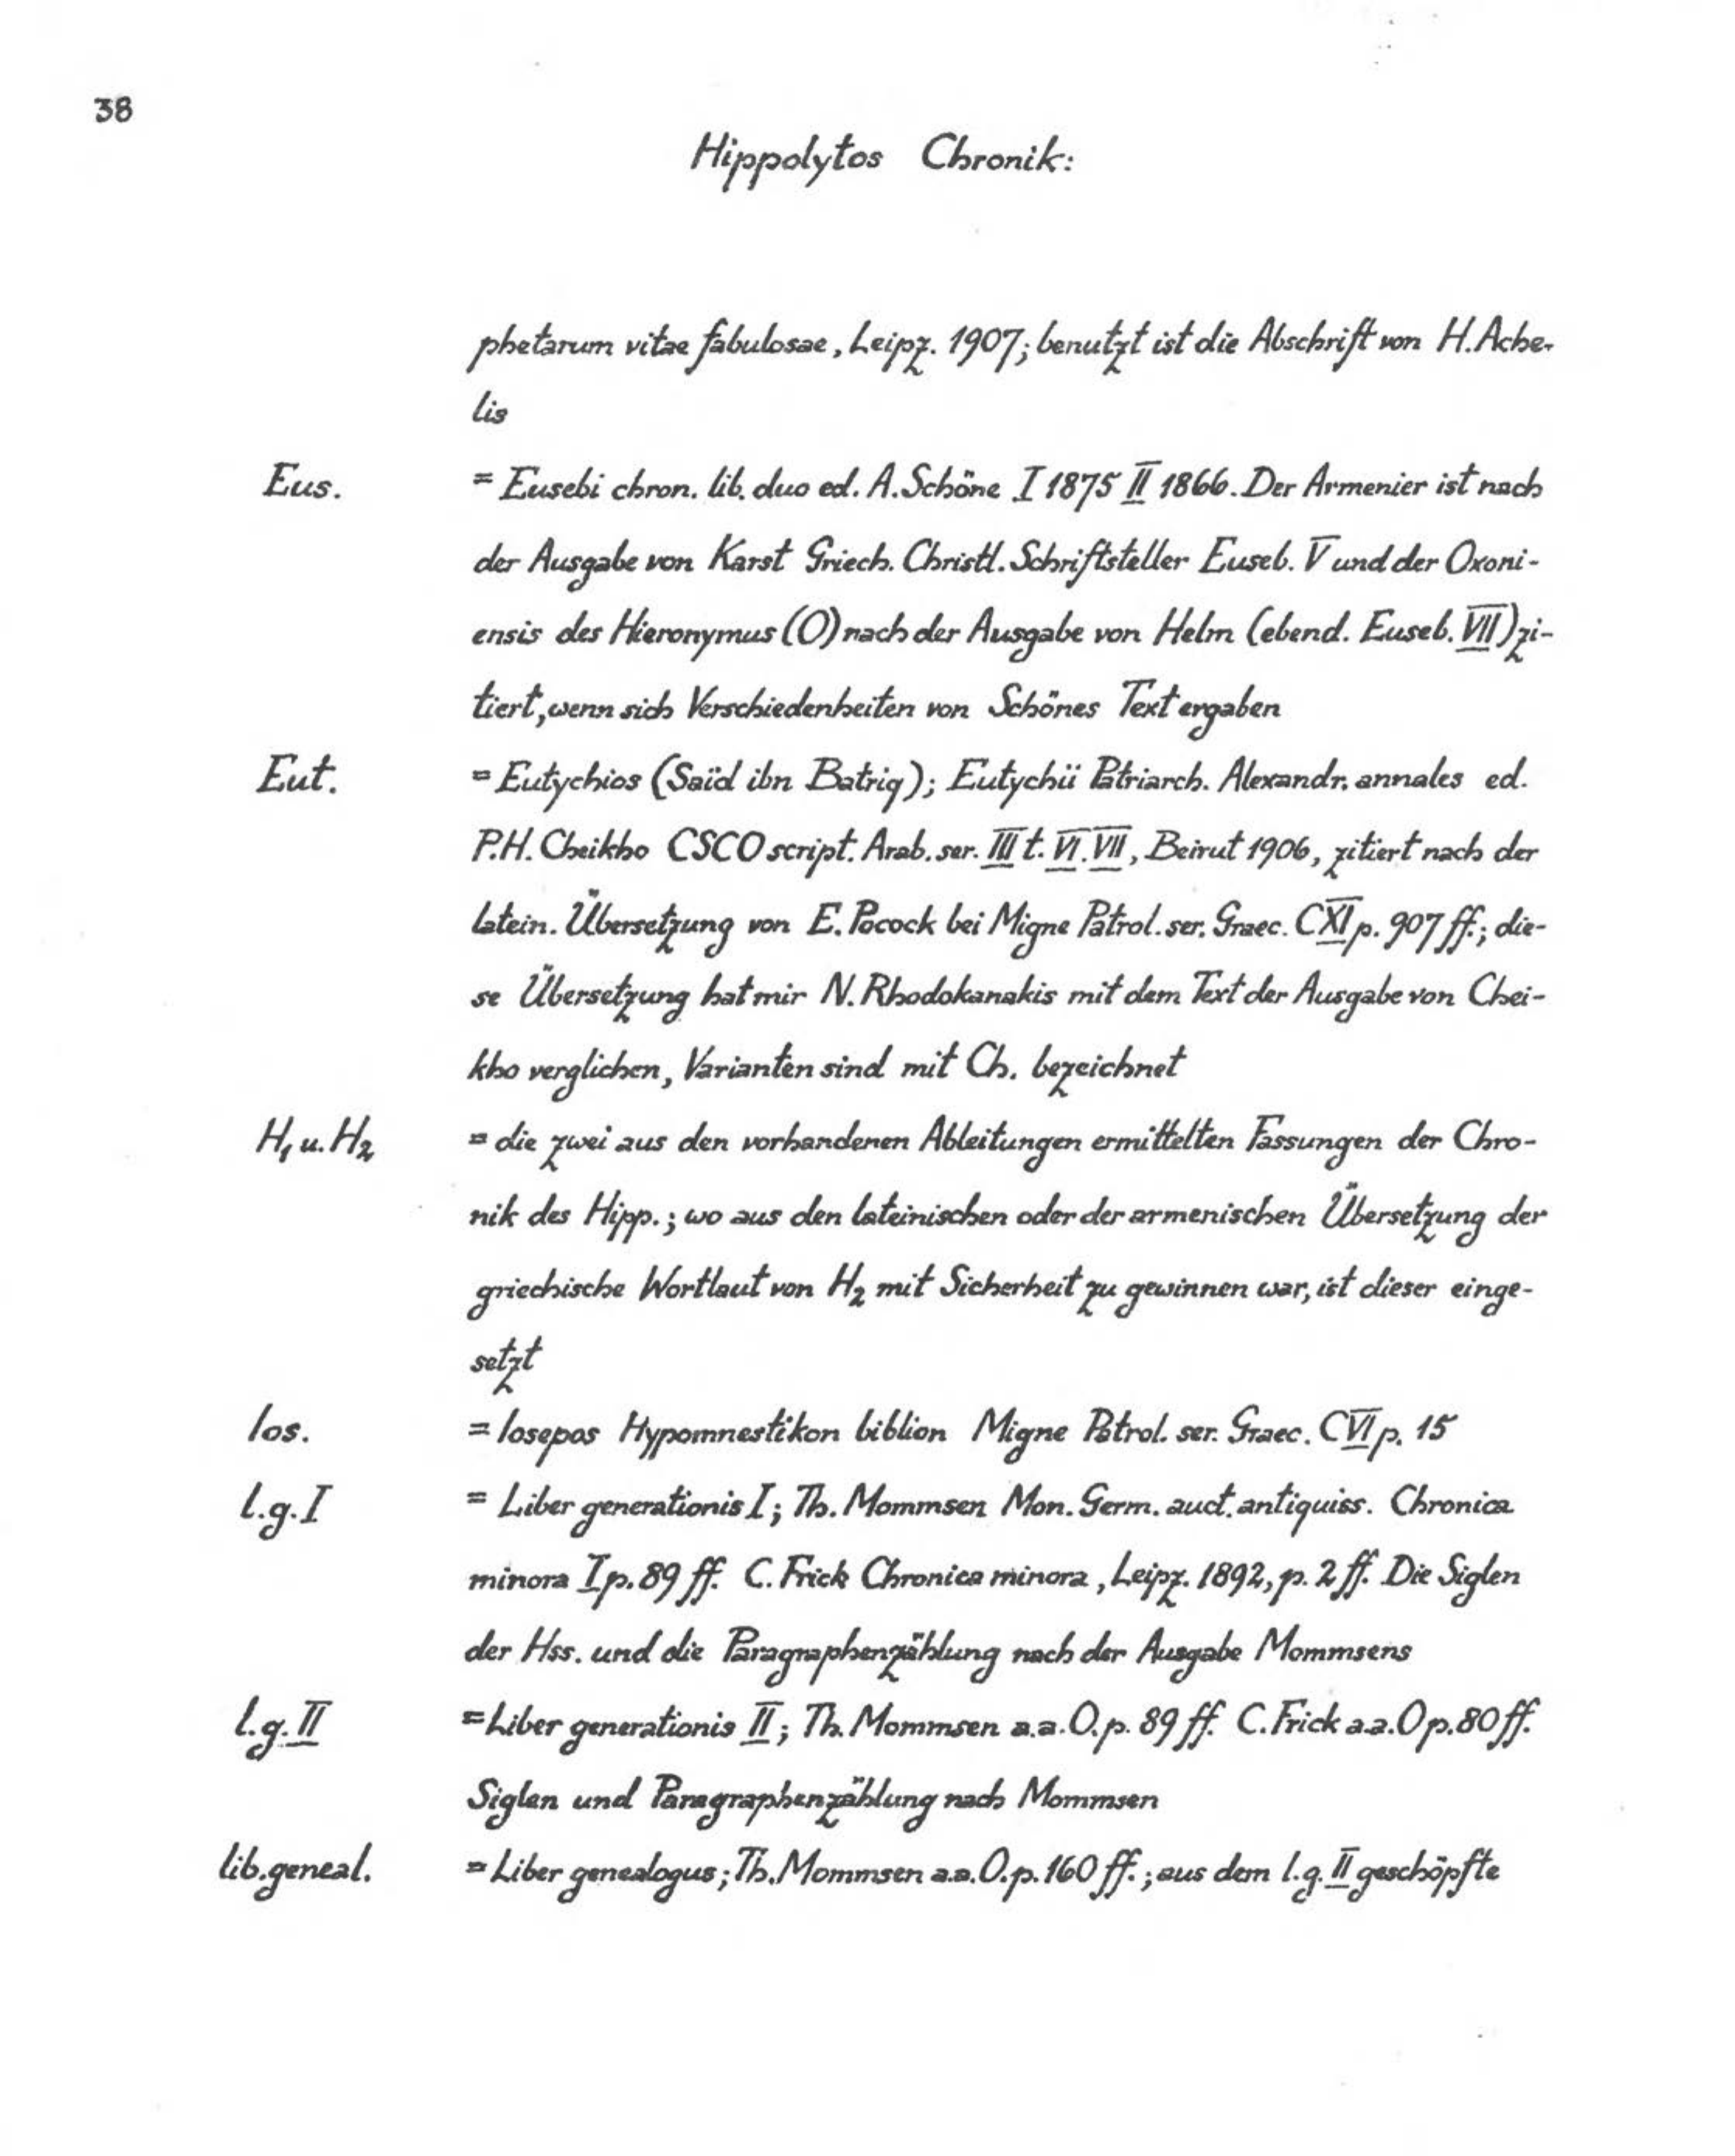 38
Hippolytos Chronik:
phetarum vitae fabulosae, Leipz. 1907; benutzt ist die Abschrift von H. Ache-
lis
Eus. = Eusebi chron. lib. duo ed. A. Schöne I 1875 II 1866. Der Armenier ist nach
der Ausgabe von Karst Griech. Christl. Schriftsteller Euseb. V und der Oxoni-
ensis des Hieronymus (O) nach der Ausgabe von Helm (ebend. Euseb. VII) zi-
tiert, wenn sich Verschiedenheiten von Schönes Text ergaben
Eut. = Eutychios (Saïd ibn Batriq); Eutychii Patriarch. Alexandr. annales ed.
P.H. Cheikho CSCO script. Arab. ser. III t. VI. VII, Beirut 1906, zitiert nach der
latein. Übersetzung von E. Pocock bei Migne Patrol. ser. Graec. CXI p. 907 ff.; die-
se Übersetzung hat mir N. Rhodokanakis mit dem Text der Ausgabe von Chei-
kho verglichen, Varianten sind mit Ch. bezeichnet
H₁ u. H₂ = die zwei aus den vorhandenen Ableitungen ermittelten Fassungen der Chro-
nik des Hipp.; wo aus den lateinischen oder der armenischen Übersetzung der
griechische Wortlaut von H₂ mit Sicherheit zu gewinnen war, ist dieser einge-
setzt
Ios. = Iosepos Hypomnestikon biblion Migne Patrol. ser. Graec. CVI p. 15
l.g. I = Liber generationis I; Th. Mommsen Mon. Germ. auct. antiquiss. Chronica
minora I p. 89 ff. C. Frick Chronica minora, Leipz. 1892, p. 2 ff. Die Siglen
der Hss. und die Paragraphenzählung nach der Ausgabe Mommsens
l.g. II = Liber generationis II; Th. Mommsen a.a.O. p. 89 ff. C. Frick a.a.O p. 80 ff.
Siglen und Paragraphenzählung nach Mommsen
lib. geneal. = Liber genealogus; Th. Mommsen a.a.O. p. 160 ff.; aus dem l.g. II geschöpfte